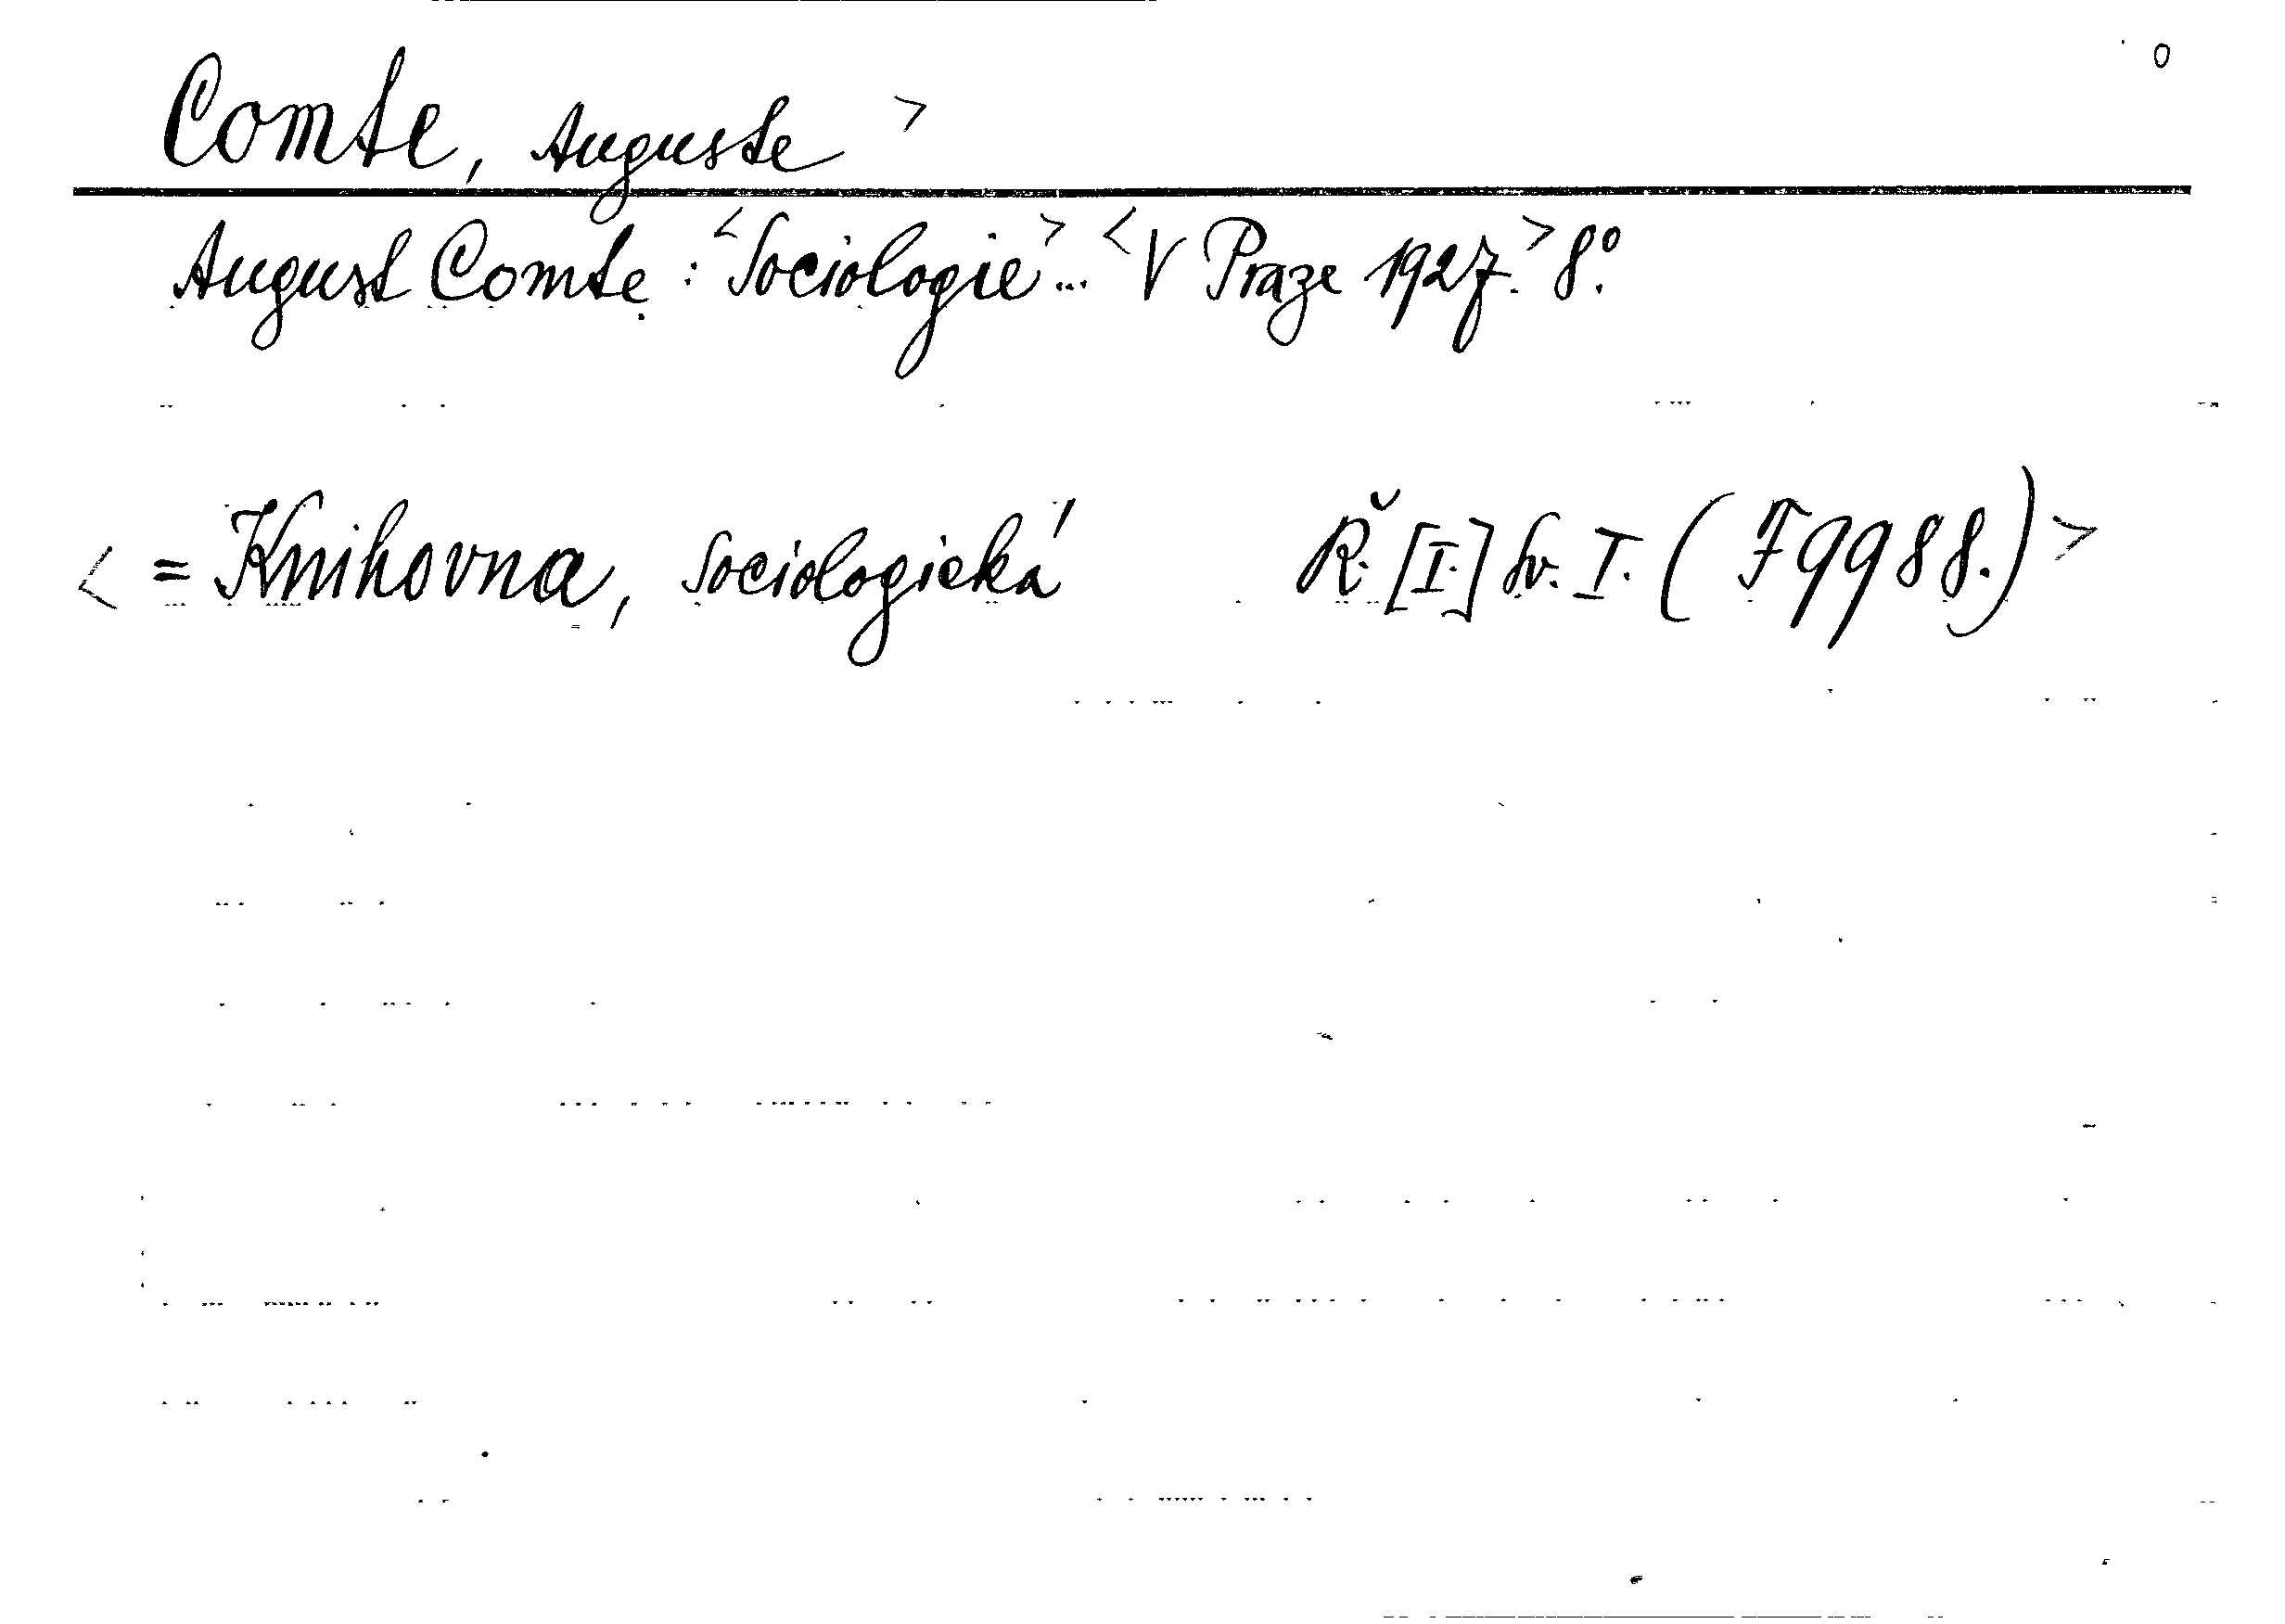 0
Comte, Auguste >
August Comte : <Sociologie> ... <V Praze 1927.> 8°.
< = Knihovna, sociologická Ř. [I.] sv. I. ( F 9988.) >